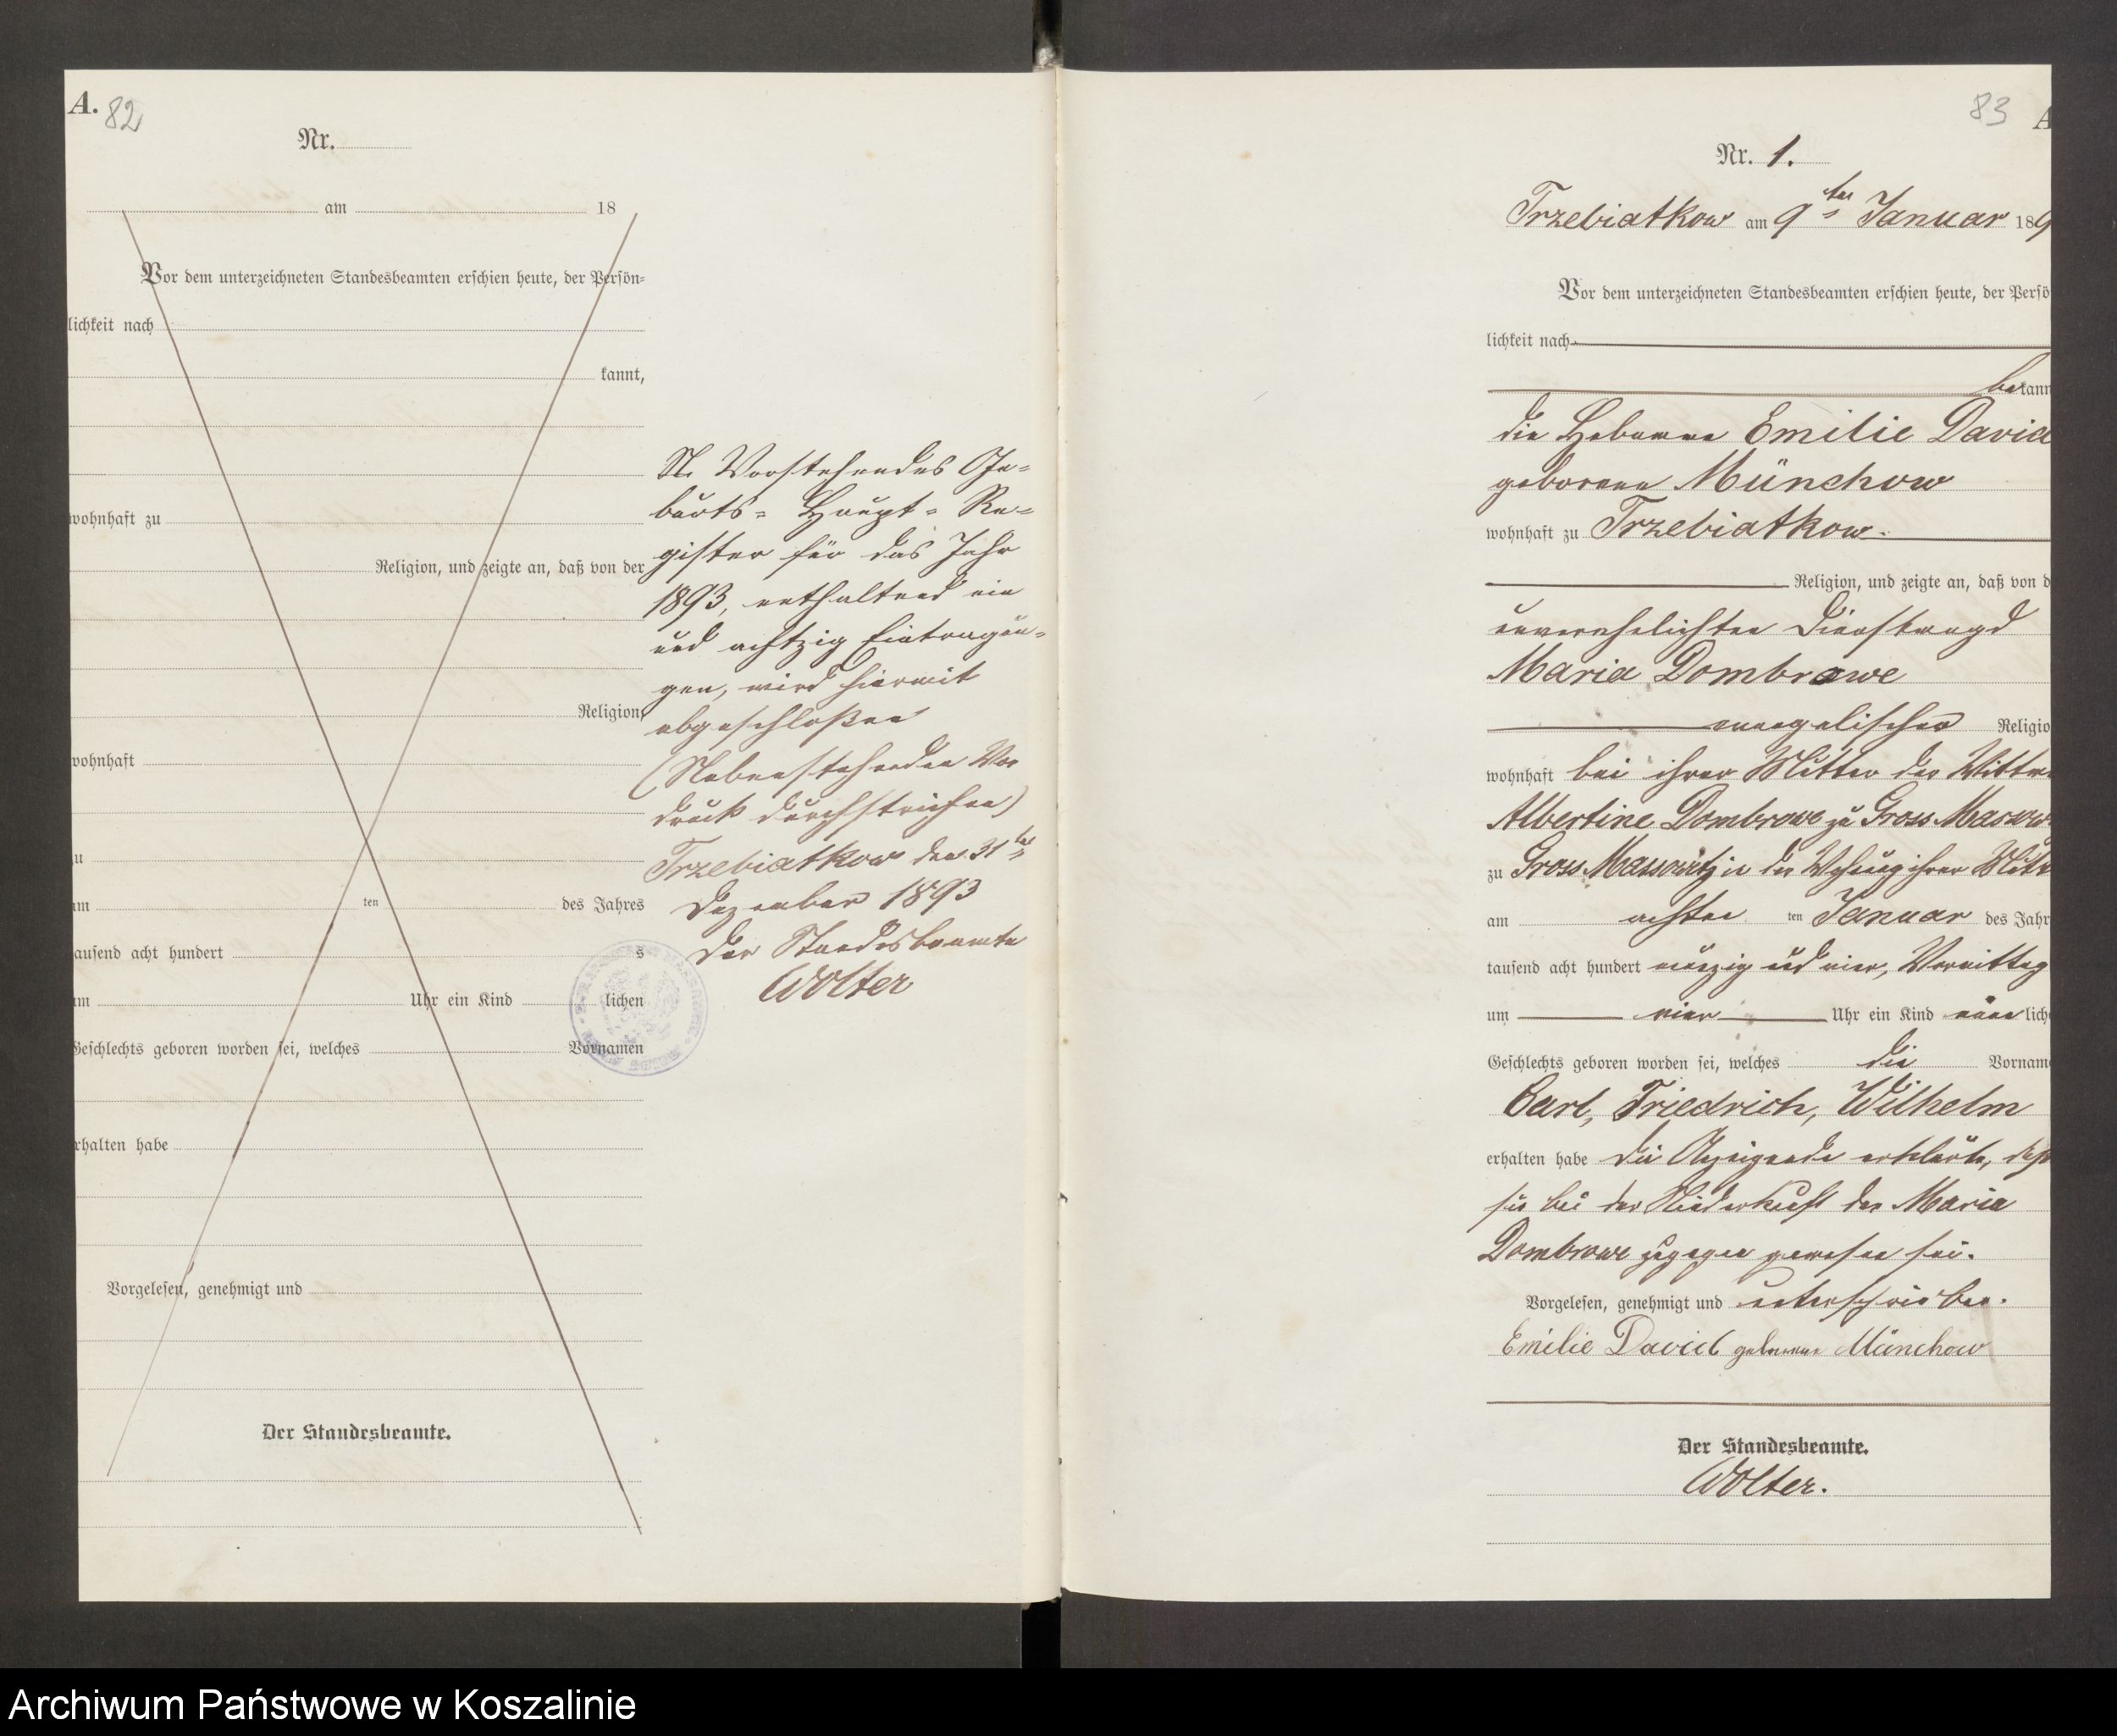 A. 82
Nr.
am 18
Vor dem unterzeichneten Standesbeamten erschien heute, der Persön=
lichkeit nach
kannt,
wohnhaft zu
Religion, und zeigte an, daß von der
Religion,
wohnhaft
zu
am ten des Jahres
tausend acht hundert s
um Uhr ein Kind lichen
Geschlechts geboren worden sei, welches Vornamen
erhalten habe
Vorgelesen, genehmigt und
Der Standesbeamte.
Vorstehendes Ge=
burts= Haupt= Re=
gister für das Jahr
1893, enthaltend ein
und achtzig Eintragun=
gen, wird hiermit
abgeschloßen
(Nebenstehenden Vor
druck durchstrichen)
Trzebiatkow den 31ten
Dezember 1893
Der Standesbeamte
Wolter
83 A
Nr. 1.
Trzebiatkow am 9ten Januar 189
Vor dem unterzeichneten Standesbeamten erschien heute, der Persö
lichkeit nach
bekann
die Hebamme Emilie David
geborene Münchow
wohnhaft zu Trzebiatkow.
Religion, und zeigte an, daß von d
unverehelichten Dienstmagd
Maria Dombrowe
evangelischer Religio
wohnhaft bei ihrer Mutter der Wittwe
Albertine Dombrowe zu Gross Massow
zu Gross Massowitz in der Wohnung ihrer Mutter
am achten ten Januar des Jahr
tausend acht hundert neunzig und vier, Vormittag
um vier Uhr ein Kind männlich
Geschlechts geboren worden sei, welches die Vorname
Carl, Friedrich, Wilhelm
erhalten habe Die Anzeigende erklärte, daß
sie bei der Niederkunft der Maria
Dombrowe zugegen gewesen sei.
Vorgelesen, genehmigt und unterschrieben.
Emilie David geborene Münchow
Der Standesbeamte.
Wolter.
Archiwum Państwowe w Koszalinie